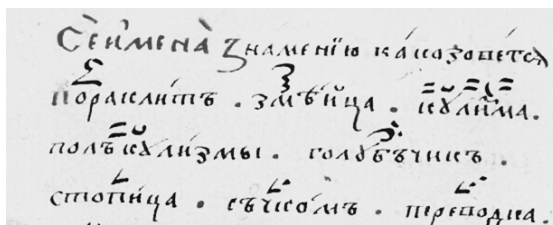 Сѐ и҆мена̀ знамени́ю ка́ко зове́тсѧ
пораклі́тъ . змѣ́йца . кꙋли́зма .
полъкꙋли́змы . голꙋ́бъчикъ .
стопи́ца . съчко́мъ . перево́дка .